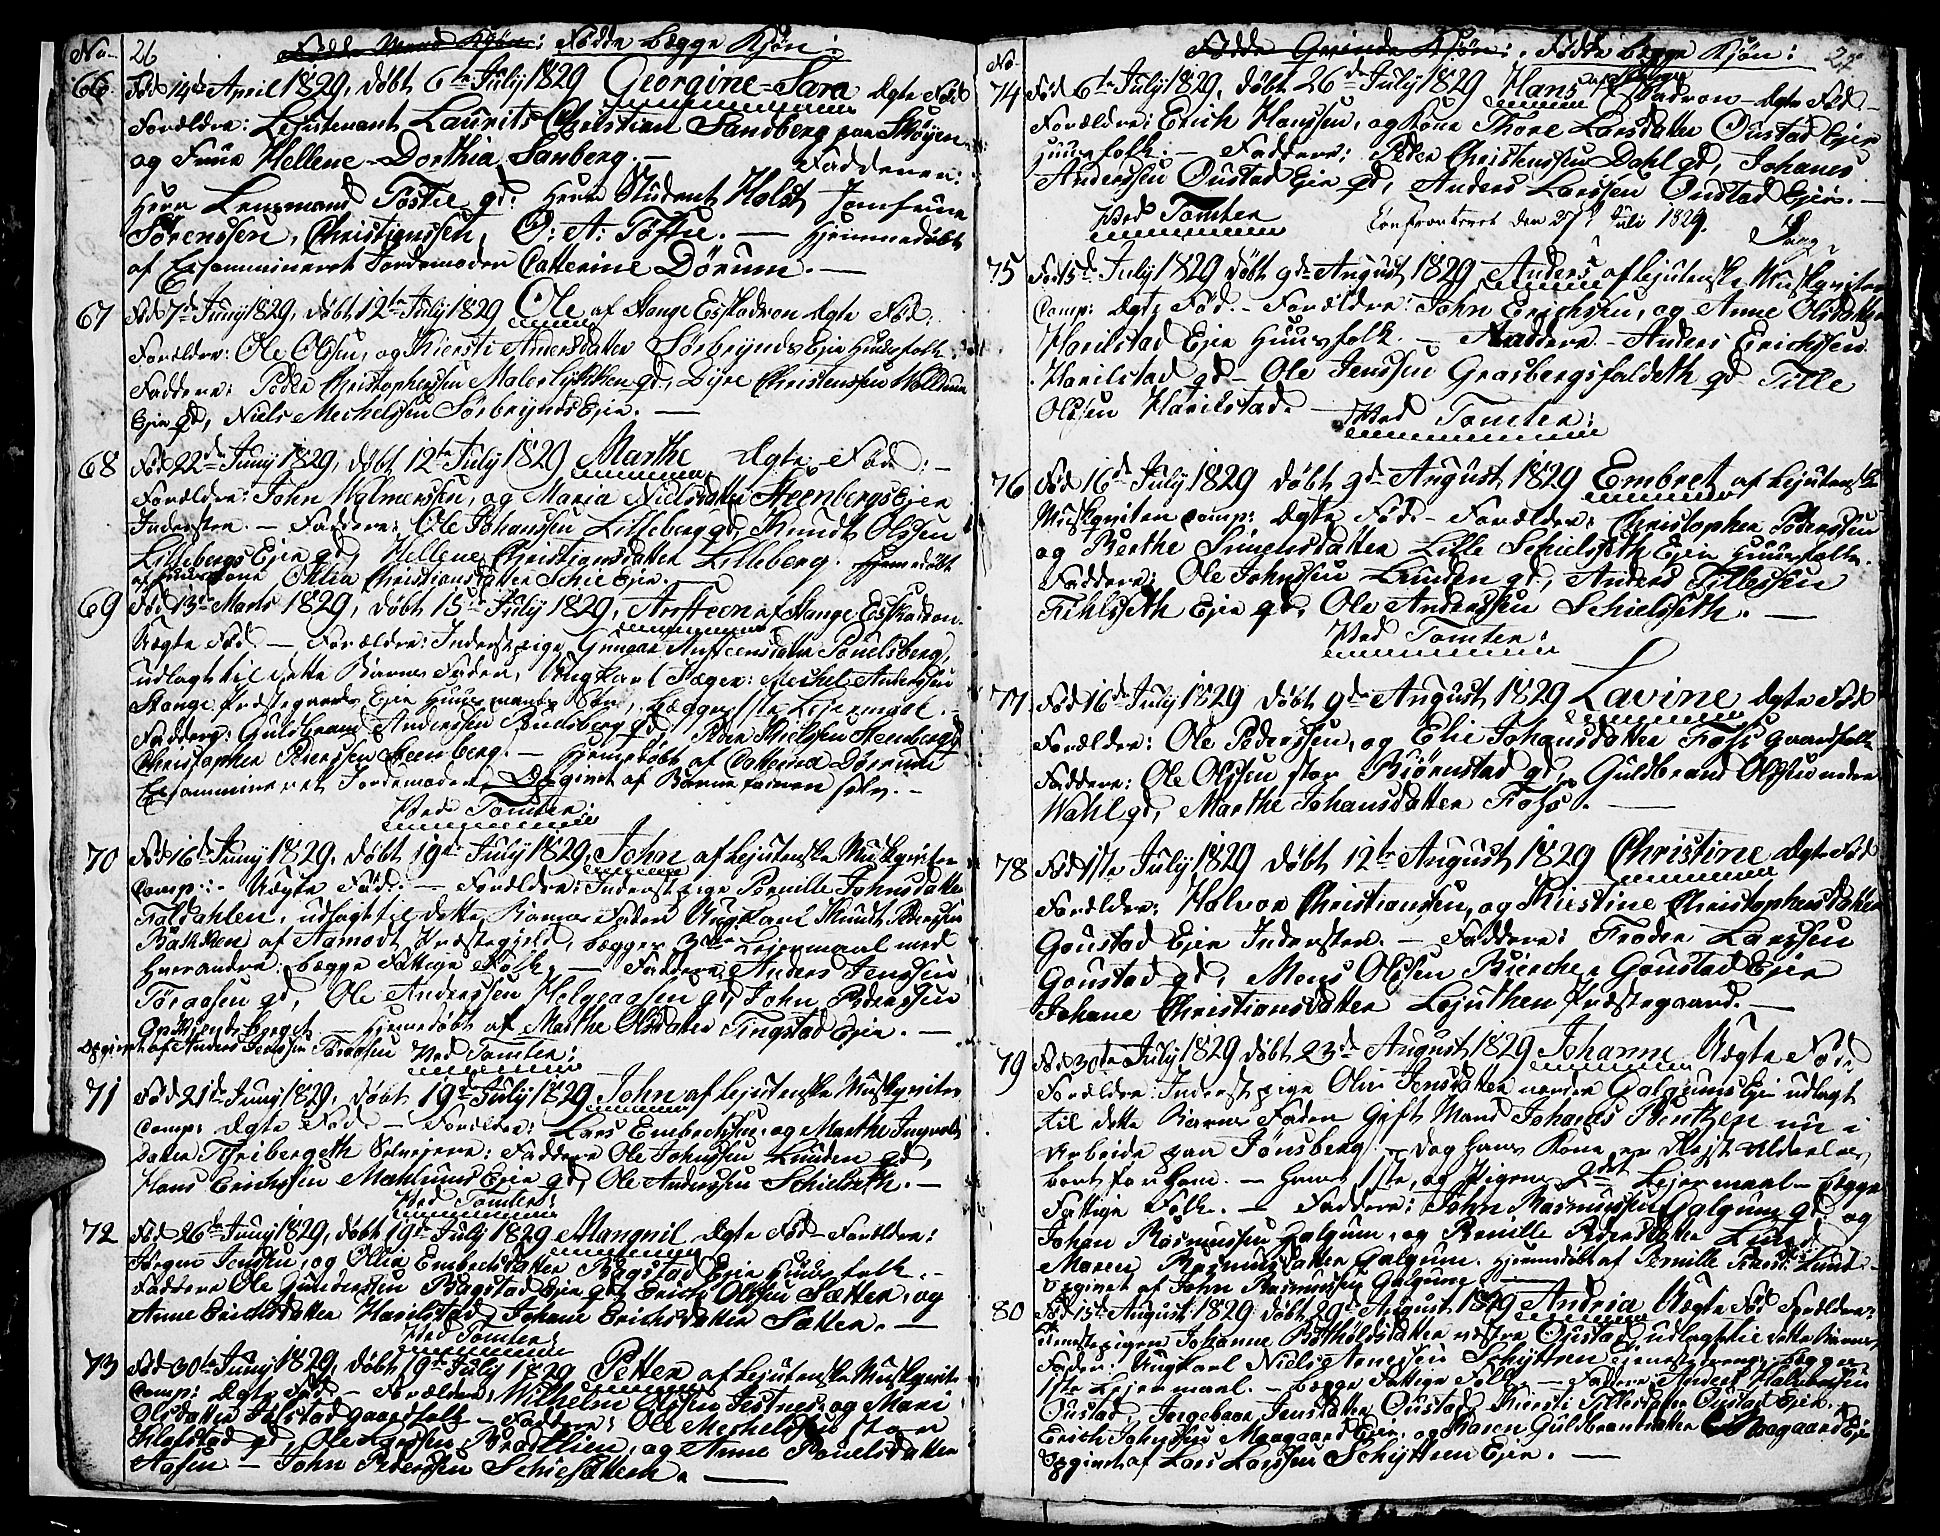 No. 26 Fødde Mand Kjøn: Fødde begge Kjøn:
66. Fød 14de April 1829, døbt 6te July 1829 Georgine=Sara Ægte Fød
Forældre: Lejutenant Laurits Christian Sandberg paa Skøyen
og Frue Hellene Dorthia Sanberg. — Fadderne:
Herr Lensmand Tøstie gd: Herr Student Holst Jomfrue
Sørenssen, Christianssen, O: A: Tøftie. — Hjemmedøbt
af Examineret Jordemoder Catterine Dørum. —
67 Fød 7de Juny 1829, døbt 12te July 1829 Ole af Stange Esskadron Ægte Fød:
Forældre: Ole Olssen, og Kiersti Andersdatter Sørbrynds Eje Huusfolk:
Faddere: Peder Christophersen Malerlykken gd, Dyre Christenssen
Eje gd, Niels Mechelssen Sørbrynds Eje. —
68 Fød 22de Juny 1829, døbt 12te July 1829 Marthe Ægte Fød: —
Forældre: John Halmerssen, og Maria Nielsdatter Steenbergs Eje
Inderster. — Faddere: Ole Johanssen Lilleberg gd, Knudt Olssen
Lillebergs Eje gd, Hellene Christiansdatter Lilleberg. Hjemmedøbt
af Huuskone Christiansdatter Schie Eje. —
69 Fød 13de Marts 1829, døbt 15de July 1829, Arsteen af Stange Esskadron.
Uægte Fød — Forældre: Inderstpige Gunnor Arsteensdatter Pouelsberg,
udlagt til dette Barns Fader, Ungkarl Jæger: Mechel Anderssen
Stange Præstegaards Eje Huusmands Søn, begges 1ste Lejermaal. —
Faddere: Guldbrand Anderssen gd, Peder Nielssen Steenberg gd
Christopher Pederssen Steenberg. — Hjemedøbt af Catterina Dørrum
Examineret Jordemoder, Opgivet af Barnefaderen selv. —
Ved Tomter:
70 Fød 16de Juny 1829, døbt 19de July 1829, John af Lejutenske Muskqviter
Comp: Uægte Fød. — Forældre: Inderstpige Pernille Johnsdatter
Foldahlen, udlagt til dette Barns Fader Ungkarl Knudt Pederssen
Bakken af Aamodt Præstegjeld, begges 3die Lejermaal med
hverandre: begge Fattige Folk. — Faddere: Anders Jenssen
Toraasen gd, Ole Anderssen Helgeaasen gd, John Pederssen
— Hjemedøbt af Marthe Olsdatter Tingstad Eje. —
Opgivet af Anders Jenssen Toraasen Ved Tomter:
71 Fød 21de Juny 1829, døbt 19de July 1829 John af Lejutenske Muskqviter
Comp: Ægte Fød — Forældre: Lars Embretssen, og Marthe Ingvolds
datter Selvejere: Faddere Ole Johnssen Lunden gd,
Hans Erichssen Mæhlums Eje gd, Ole Anderssen Schielseth. —
Ved Tomter:
72 Fød 26de Juny 1829, døbt 19de July 1829 Mangnil Ægte Fød — Forældre:
Jørgen Jenssen, og Ollia Embretsdatter Bægstad Eje Huusfolk. —
Faddere Ole Gunderssen Bægstad Eje gd, Erich Olssen Sætter, og
Anne Erichsdatter Harilstad Johane Erichsdatter Sætter. —
Ved Tomter:
73 Fød 30te Juny 1829, døbt 19de July 1829 Petter af Lejutenske Muskqvite
Comp: Ægte Fød — Forældre: Wilhelm Olssen Festnes, og Mari
Olsdatter Jølstad Gaardfolk — Faddere: Ole Mechelssen stor
Kløfstad gd, Ole Larssen Brødlien, og Anne Pouelsdatter
Aasen — John Pederssen Schiesætteren. —
No. Fødde Qvinde Kjøn: Fødde begge Kjøn: 27
74 Fød 6te July 1829, døbt 26de July 1829 Hans af Stange Esskadron — Ægte Fød —
Forældre: Erich Hanssen, og Kone Thore Larsdatter Oustad Eje
Huusfolk. — Faddere: Peder Christenssen Dahl gd, Johanes
Anderssen Oustad Eje gd, Anders Larssen Oustad Eje. —
Ved Tomter Confronteret den 27de Juli 1829.
75 Fød 5te July 1829 døbt 9de August 1829 Anders af Lejutenske Muskqviter
Comp: Ægte Fød. — Forældre: John Erichssen, og Anne Olsdatter
Harilstad Eje Huusfolk. — Faddere — Anders Erichssen
Harilstad gd — Ole Jenssen Grasbergsfaldeth gd Tille
Olssen Harilstad. —
Ved Tomter:
76 Fød 16de July 1829 døbt 9de August 1829 Embret af Lejutenske
Muskqviter Comp: Ægte Fød. — Forældre: Christopher Pederssen
og Berthe Simensdatter Lille Schielseth Eje Huusfolk.
Faddere: Ole Johnssen Lunden gd, Anders Tillessen
Fihlseth Eje gd, Ole Anderssen Schielseth. —
Ved Tomter:
77 Fød 16de July 1829 døbt 9de August 1829 Lavine Ægte Fød
Forældre: Ole Pederssen, og Elie Johansdatter Foss Gaardfolk
Faddere: Ole Olssen stor Biørnstad gd, Guldbrand Olssen nedre
Wahl gd, Marthe Johansdatter Foss. —
78 Fød 1ste July 1829 døbt 12te August 1829 Christine Ægte Fød
Forældre: Halvor Christianssen, og Kiestine Christophersdatter
Goustad Eje Inderster. — Faddere: Froder Larssen
Goustad gd, Mons Olssen Bierche, Goustad Eje
Johane Christiansdatter Lejuthen Præstegaard. —
79 Fød 30te July 1829 døbt 23de August 1829 Johanne Uægte Fød:
Forældre: Inderstpige Olia Jensdatter nordre Galgum Eje udlagt
til dette Barns Fader Gift Mand Johanes Bentzen nu i
Arbeide paa Jønsberg — dog hans Kone er Rejst Aldeeles
bort for ham. — hans 1ste, og Pigens 2det Lejermaal — begge
Fattige Folk. — Faddere: John Rasmussen Galgum gd, og
Johan Rasmussen Galgum, og Pernille Pedersdatter Lund,
Maren Rasmusdatter Galgum. Hjemmedøbt af Pernille Pedersd: Lund —
Opgivet af John Rasmussen Galgum —
80 Fød 15de August 1829 døbt 29de August 1829 Andria Uægte Fød Forældre:
Tienestpigen Johanne Botholdsdatter vestre Oustad, udlagt til dette Barns
Fader: Ungkarl Nielis Arnessen Schytteren Ejendt: begges
1ste Lejermaal. — begge Fattige Folk. — Faddere: Anders Halvorssen
Oustad, Ingeboer Jensdatter Oustad, Kiersti Tillesdatter Oustad Eje,
Erich Johnssen Moegaard Eje, og Karen Guldbrandsdatter Moegaard Eje
Opgivet af Lars Larssen Schytteren Eje. —